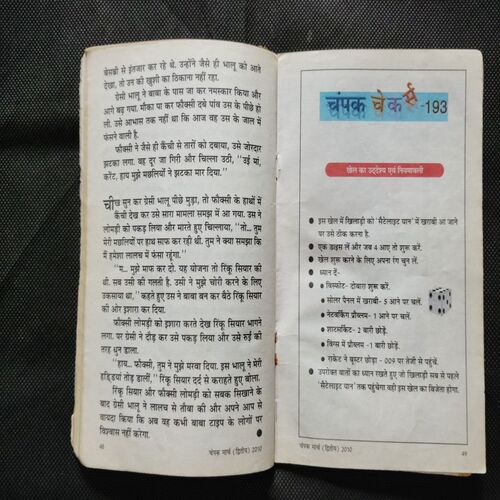 बेसब्री से इंतजार कर रहे थे. उन्होंने जैसे ही भालू को आते
देखा, तो उन की खुशी का ठिकाना नहीं रहा.
ग्रेसी भालू ने बाबा के पास जा कर नमस्कार किया और
आगे बढ़ गया. मौका पा कर फौक्सी दबे पांव उस के पीछे हो
ली. उसे आभास तक नहीं था कि आज वह उस के जाल में
फंसने वाली है.
फौक्सी ने जैसे ही कैंची से तारों को दबाया, उसे जोरदार
झटका लगा. वह दूर जा गिरी और चिल्ला उठी, ''उई मां,
करेंट, हाय मुझे मछलियों ने झटका मार दिया.''
चीख सुन कर ग्रेसी भालू पीछे मुड़ा, तो फौक्सी के हाथों में
कैंची देख कर उसे सारा मामला समझ में आ गया. उस ने
लोमड़ी को पकड़ लिया और मारते हुए चिल्लाया, ''तो... तुम
मेरी मछलियों पर हाथ साफ कर रही थी. तुम ने क्या समझा कि
मैं हमेशा लालच में फंसा रहूंगा.''
''म... मुझे माफ कर दो. यह योजना तो रिंकू सियार की
थी. सब उसी की गलती है. उसी ने मुझे चोरी करने के लिए
उकसाया था,'' कहते हुए उस ने बाबा बन कर बैठे रिंकू सियार
की ओर इशारा कर दिया.
फौक्सी लोमड़ी को इशारा करते देख रिंकू सियार भागने
लगा. पर ग्रेसी ने दौड़ कर उसे पकड़ लिया और उसे रुई की
तरह धुन डाला.
''हाय... फौक्सी, तुम ने मुझे मरवा दिया. इस भालू ने मेरी
हड्डियां तोड़ डालीं,'' रिंकू सियार दर्द से कराहते हुए बोला.
रिंकू सियार और फौक्सी लोमड़ी को सबक सिखाने के
बाद ग्रेसी भालू ने लालच से तौबा की और अपने आप से
वायदा किया कि अब वह कभी बाबा टाइप के लोगों पर
विश्वास नहीं करेगा.
48
चंपक मार्च (द्वितीय) 2010
चंपक चेकर्स -193
खेल का उद्देश्य एवं नियमावली
इस खेल में खिलाड़ी को 'सैटेलाइट यान' में खराबी आ जाने
पर उसे ठीक करना है.
एक डाइस लें और जब 4 आए तो शुरू करें.
खेल शुरू करने के लिए अपना रंग चुन लें.
ध्यान दें-
विस्फोट- दोबारा शुरू करें.
सोलर पैनल में खराबी- 5 आने पर चलें.
नेटवर्किंग प्रौब्लम- 1 आने पर चलें.
शार्टसर्किट- 2 बारी छोड़ें.
विंग्स में प्रौब्लम- 1 बारी छोड़ें.
राकेट ने बूस्टर छोड़ा - 009 पर तेजी से पहुंचें.
उपरोक्त बातों का ध्यान रखते हुए जो खिलाड़ी सब से पहले
'सैटेलाइट यान' तक पहुंचेगा वही इस खेल का विजेता होगा.
चंपक मार्च (द्वितीय) 2010
49